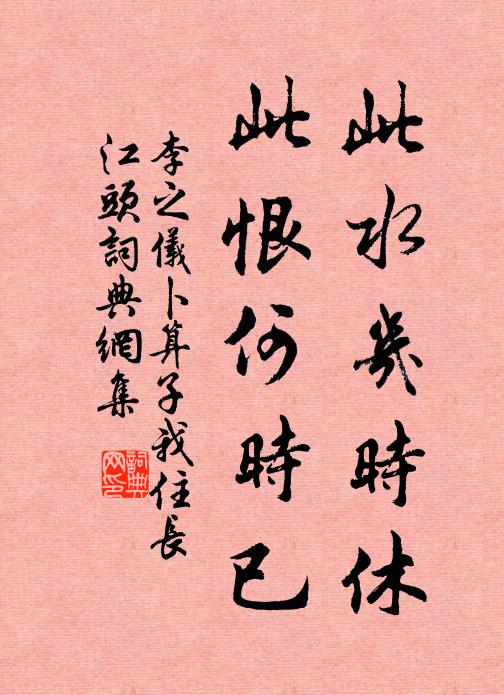 此水幾時休
此恨何時已
李之儀卜算子我住長
江頭詞典網集
詞典
网印